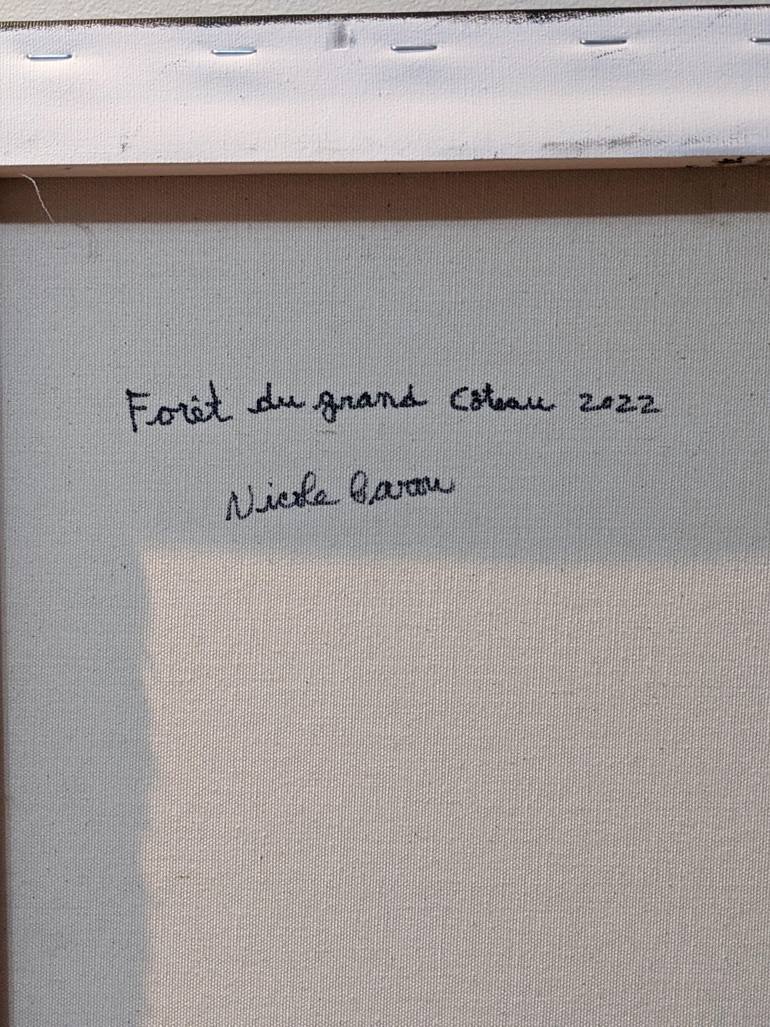 Forêt du grand Côteau 2022
Nicole Baron